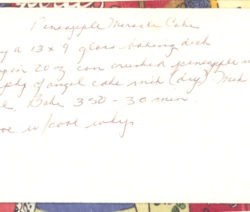 Pineapple Miracle Cake
a 13 x 9 glass baking dish
20 oz can crushed pineapple
pkg of angel cake mix (dry)
Bake 350 - 30 min.
w/cool whip